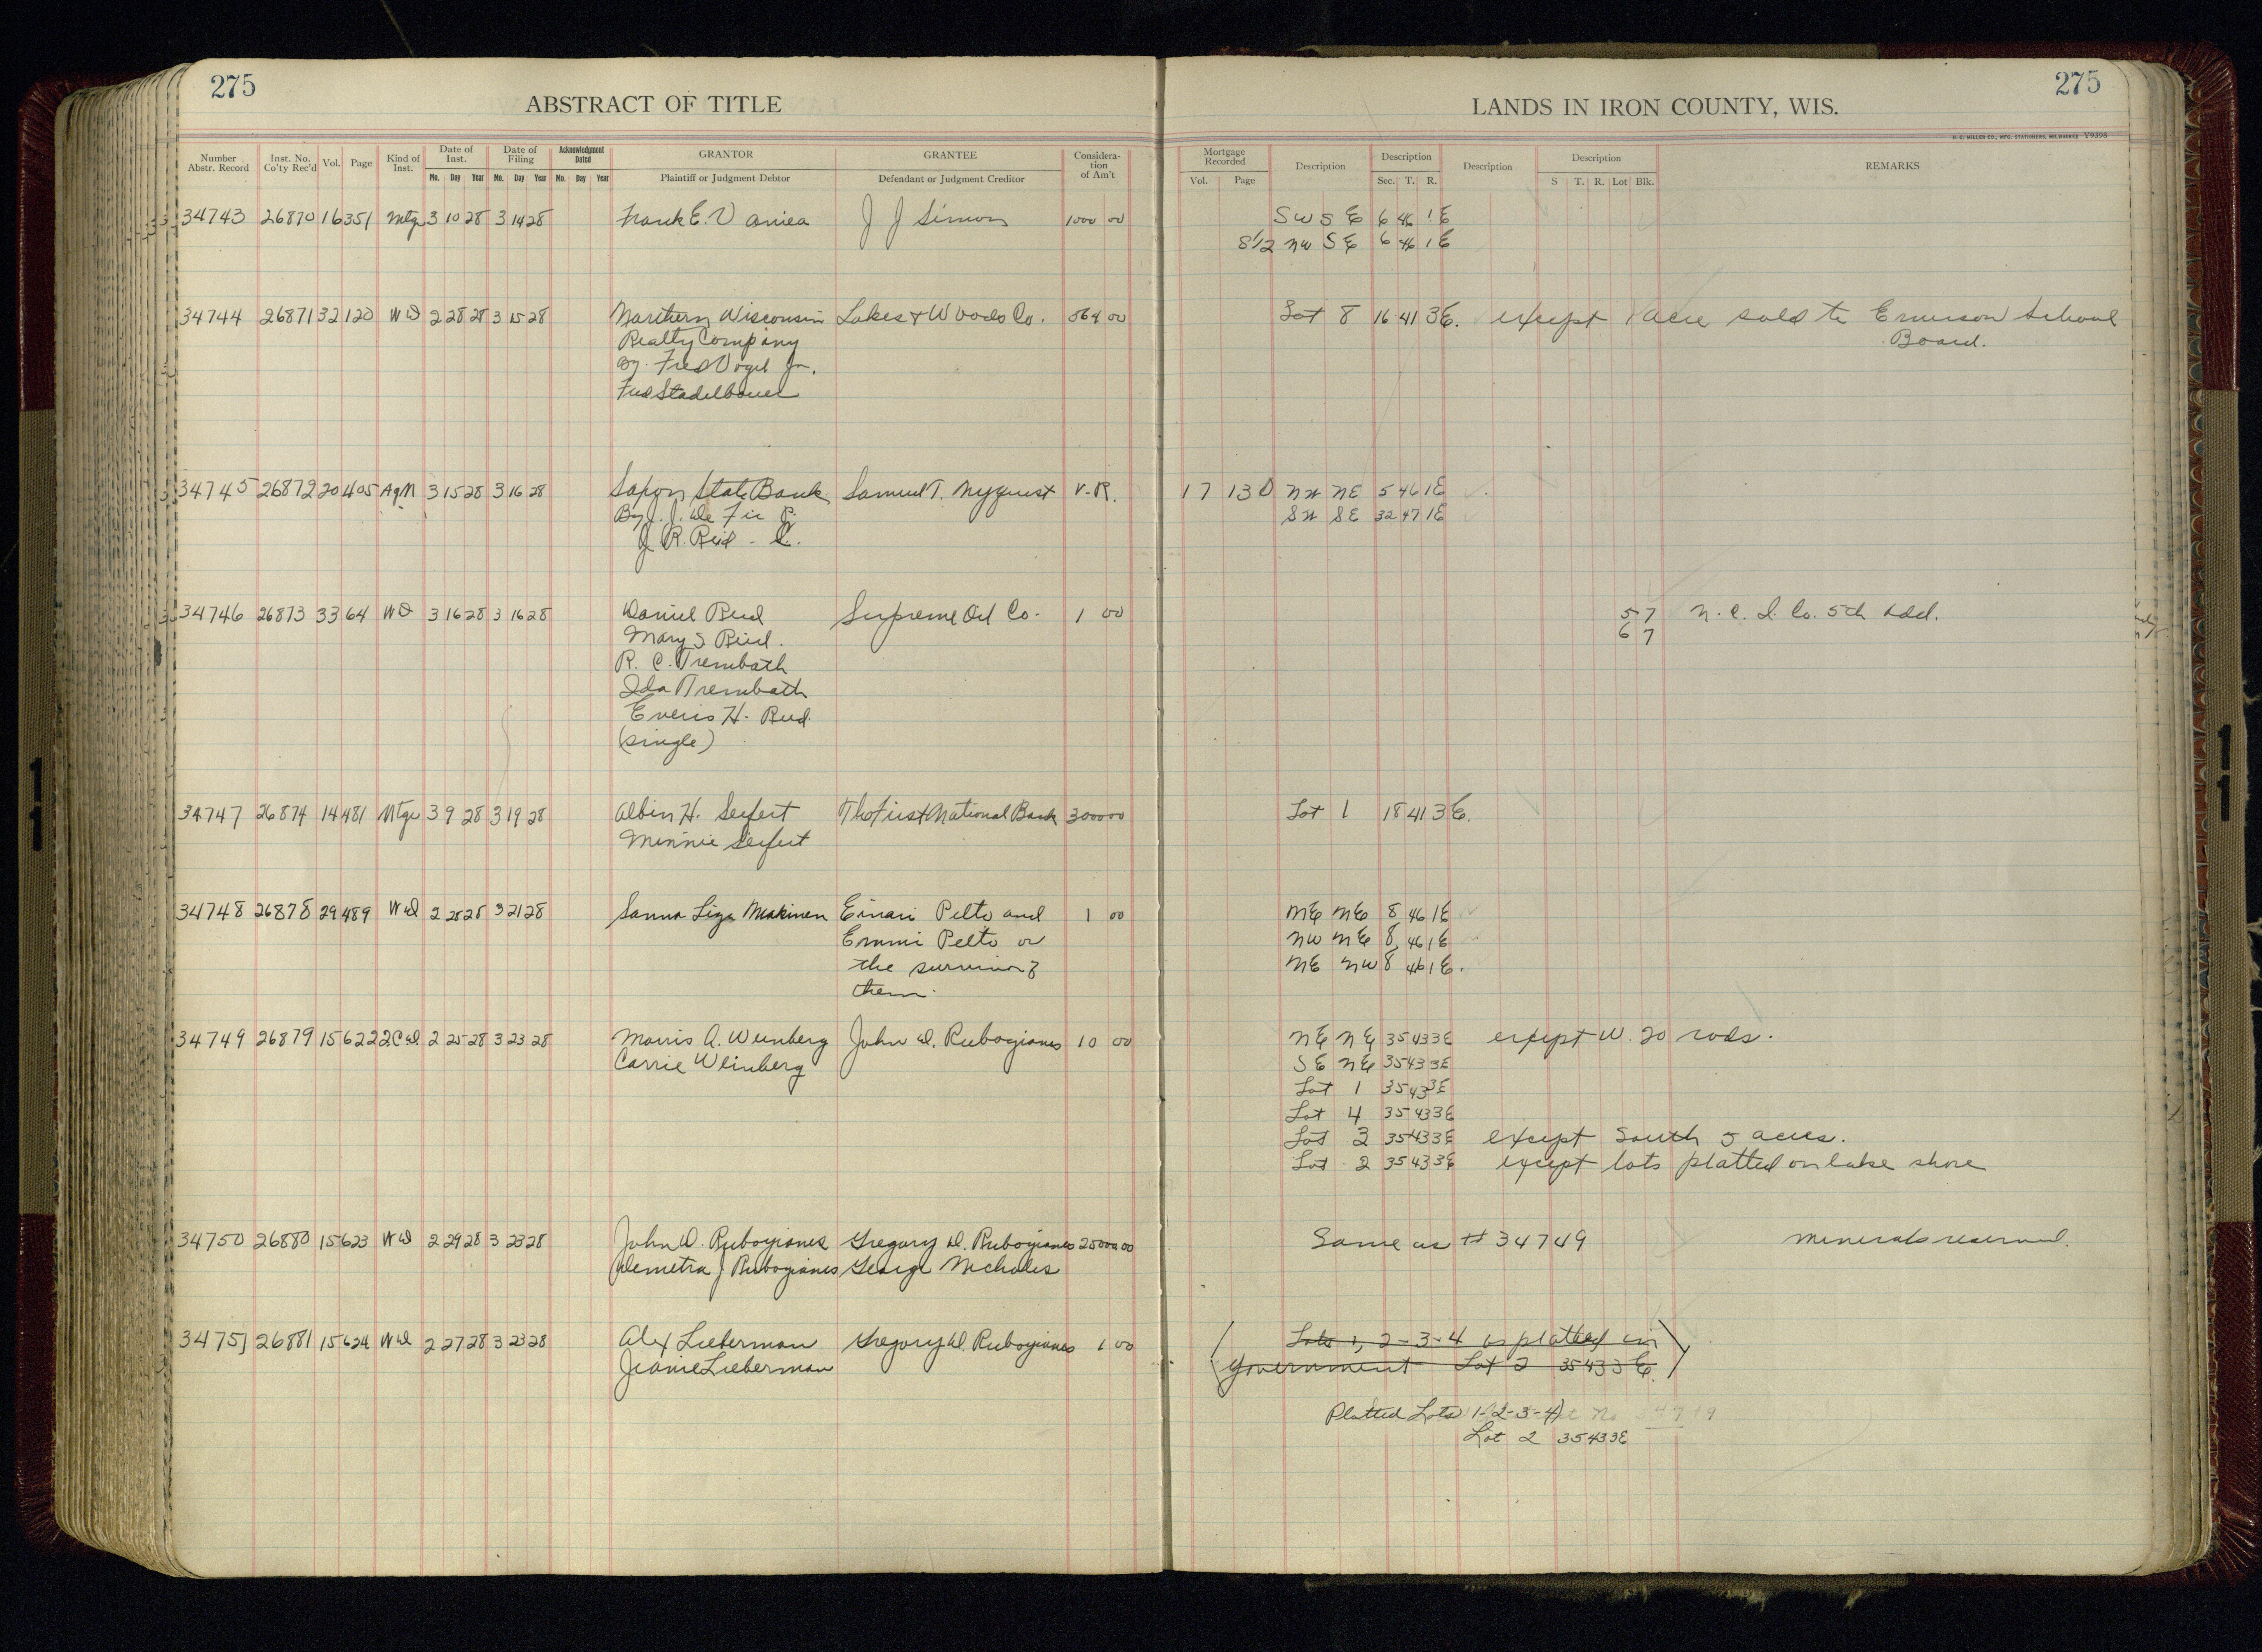 275
275
ABSTRACT OF TITLE
LANDS IN IRON COUNTY, WIS.
H. C. MILLER CO., MFG. STATIONERS, MILWAUKEE V9398
Number Abstr. Record Inst. No. Co'ty Rec'd Vol. Page Kind of Inst. Date of Inst. Date of Filing Acknowledgment Dated GRANTOR GRANTEE Considera-tion of Am't Mortgage Recorded Description Description Description Description REMARKS
Mo. Day Year Mo. Day Year Mo. Day Year Plaintiff or Judgment Debtor Defendant or Judgment Creditor Vol. Page Sec. T. R. S T. R. Lot Blk.
34743 26870 16 351 Mtge 3 10 28 3 14 28 Frank E. J J Simon 1000 00 SW SE 6 46 1E
S1/2 NW SE 6 46 1E
34744 26871 32 120 WD 2 28 28 3 15 28 Northern Wisconsin Lakes & Woods Co. 564 00 Lot 8 16 41 3E. except 1 acre sold to Emerson School
Realty Company Board.
By Fred Vogel Jr.
Fred Stadelbauer
34745 26872 20 405 AgM 3 15 28 3 16 28 Saxon State Bank Samuel T. Nyquist V.R. 17 130 NW NE 5 46 1E
By J. J. De Fer P. SW SE 32 47 1E
J R. Reid - C.
34746 26873 33 64 WD 3 16 28 3 16 28 Daniel Reid Supreme Oil Co. 1 00 5 7 N. C. I. Co. 5th Add.
Mary S Reid. 6 7
R. C. Trembath
Ida Trembath
Everis H. Reid
(single)
34747 26874 14 481 Mtge 3 9 28 3 19 28 Albin H. Seifert The First National Bank 3000 00 Lot 1 18 41 3E.
Minnie Seifert
34748 26878 29 489 WD 2 28 28 3 21 28 Sanna Liza Makinen Einari Pelto and 1 00 NE NE 8 46 1E
Emmi Pelto or NW NE 8 46 1E
the survivor of NE NW 8 46 1E.
them.
34749 26879 15 622 2CD 2 25 28 3 23 28 Morris A. Weinberg John D. Rubogianes 10 00 NE NE 35 43 3E except W. 20 rods.
Carrie Weinberg SE NE 35 43 3E
Lot 1 35 43 3E
Lot 4 35 43 3E
Lot 3 35 43 3E except South 5 acres.
Lot 2 35 43 3E except lots platted on lake shore
34750 26880 15 623 WD 2 29 28 3 23 28 John D. Rubogianes Gregory D. Rubogianes 25000 00 Same as # 34749 minerals reserved.
Demetra J Rubogianes George Nicholes
34751 26881 15 624 WD 2 27 28 3 23 28 Alex Lieberman Gregory D. Rubogianes 1 00 (Lots 1, 2-3-4 as platted in
Jeanie Lieberman Government Lot 2 35 43 3E.)
Platted Lots 1-2-3-4
Lot 2 35 43 3E